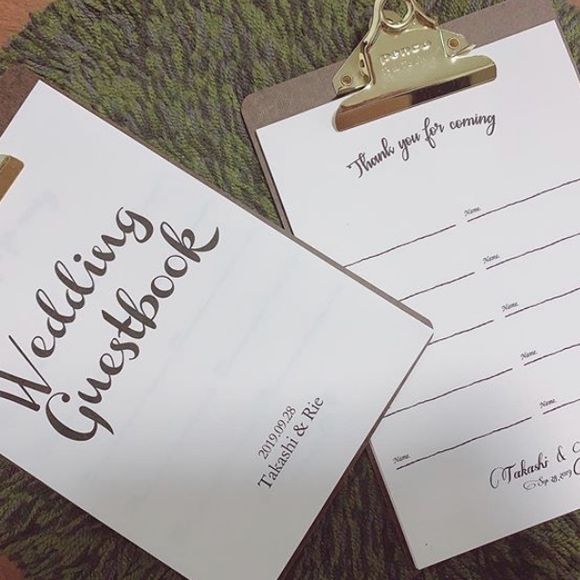 Wedding
Guestbook
2019.09.28
Takashi & Rie
penco
Thank you for coming
Name.
Name.
Name.
Name.
Name.
Name.
Takashi &
Sep 28, 2019